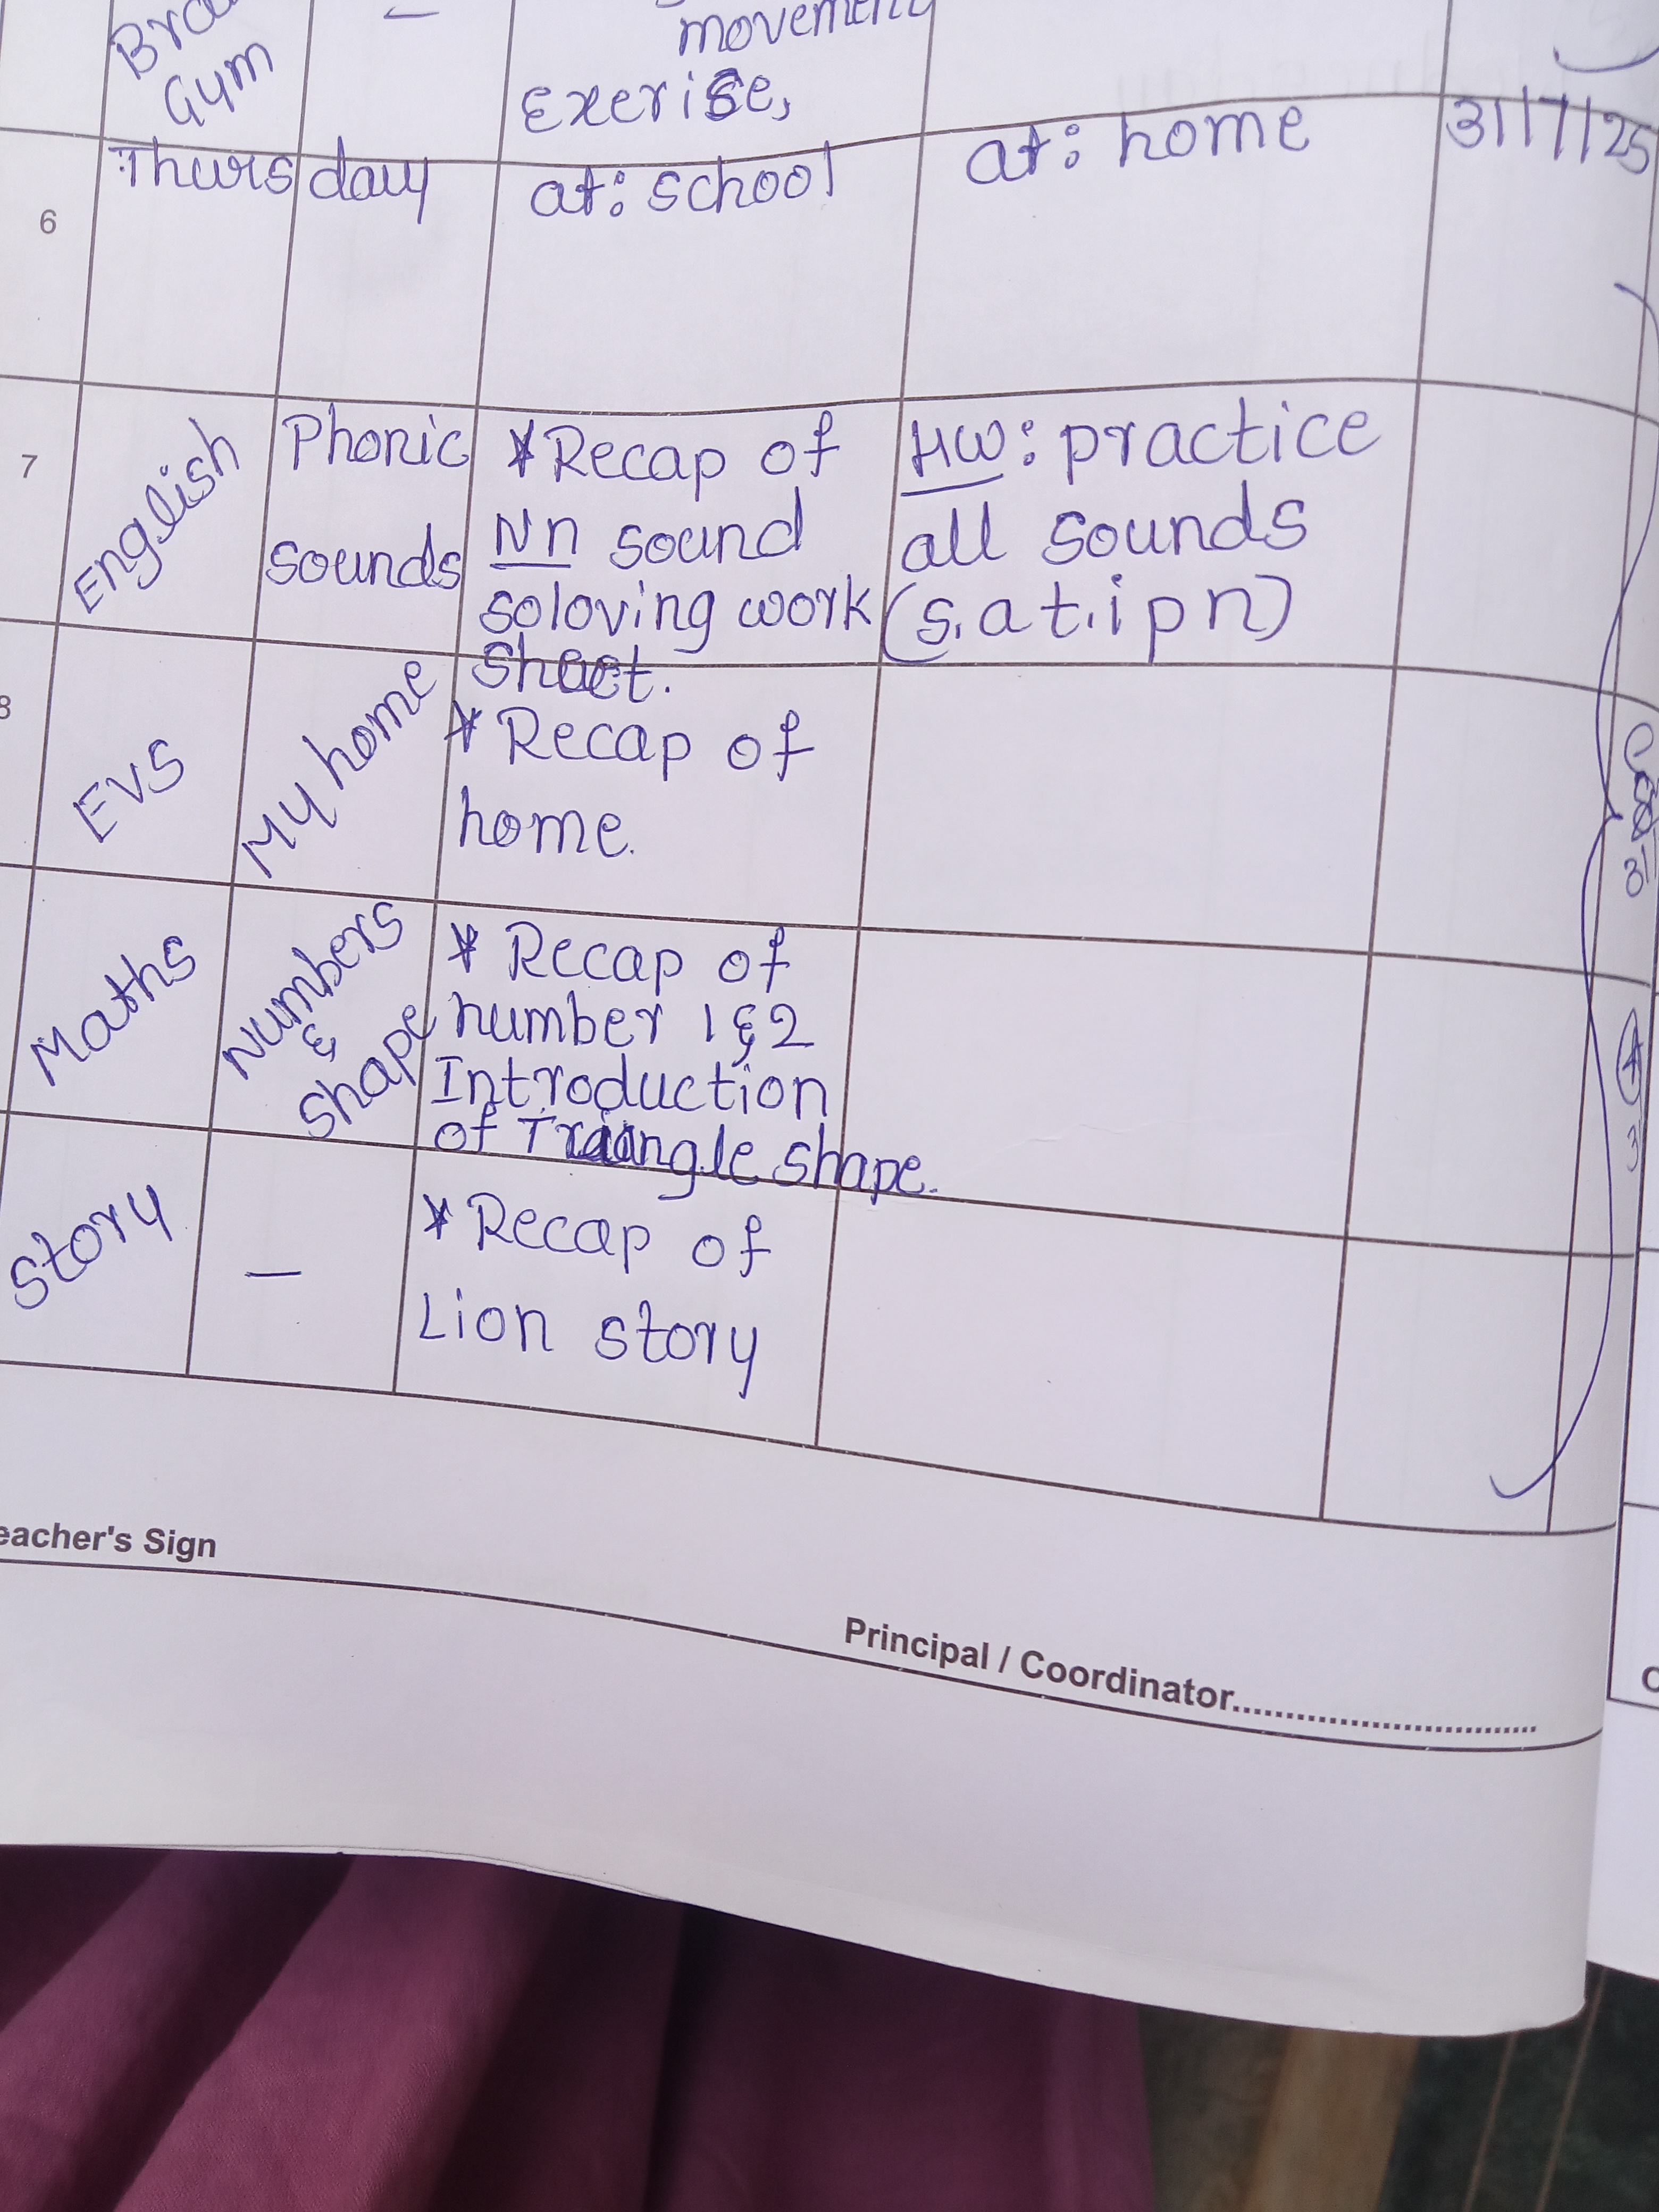 movement
Gym
—
Exerise,
6
Thursday
at: school
at: home
31/7/25
7
English
Phonic
sounds
*Recap of
Nn sound
soloving work
sheet.
HW: practice
all sounds
(s. a t. i p n)
8
EVS
My home
* Recap of
home.
Maths
Numbers
&
Shape
* Recap of
number 1&2
Introduction
of Triangle shape.
Story
—
* Recap of
Lion story
eacher's Sign
Principal / Coordinator..............................